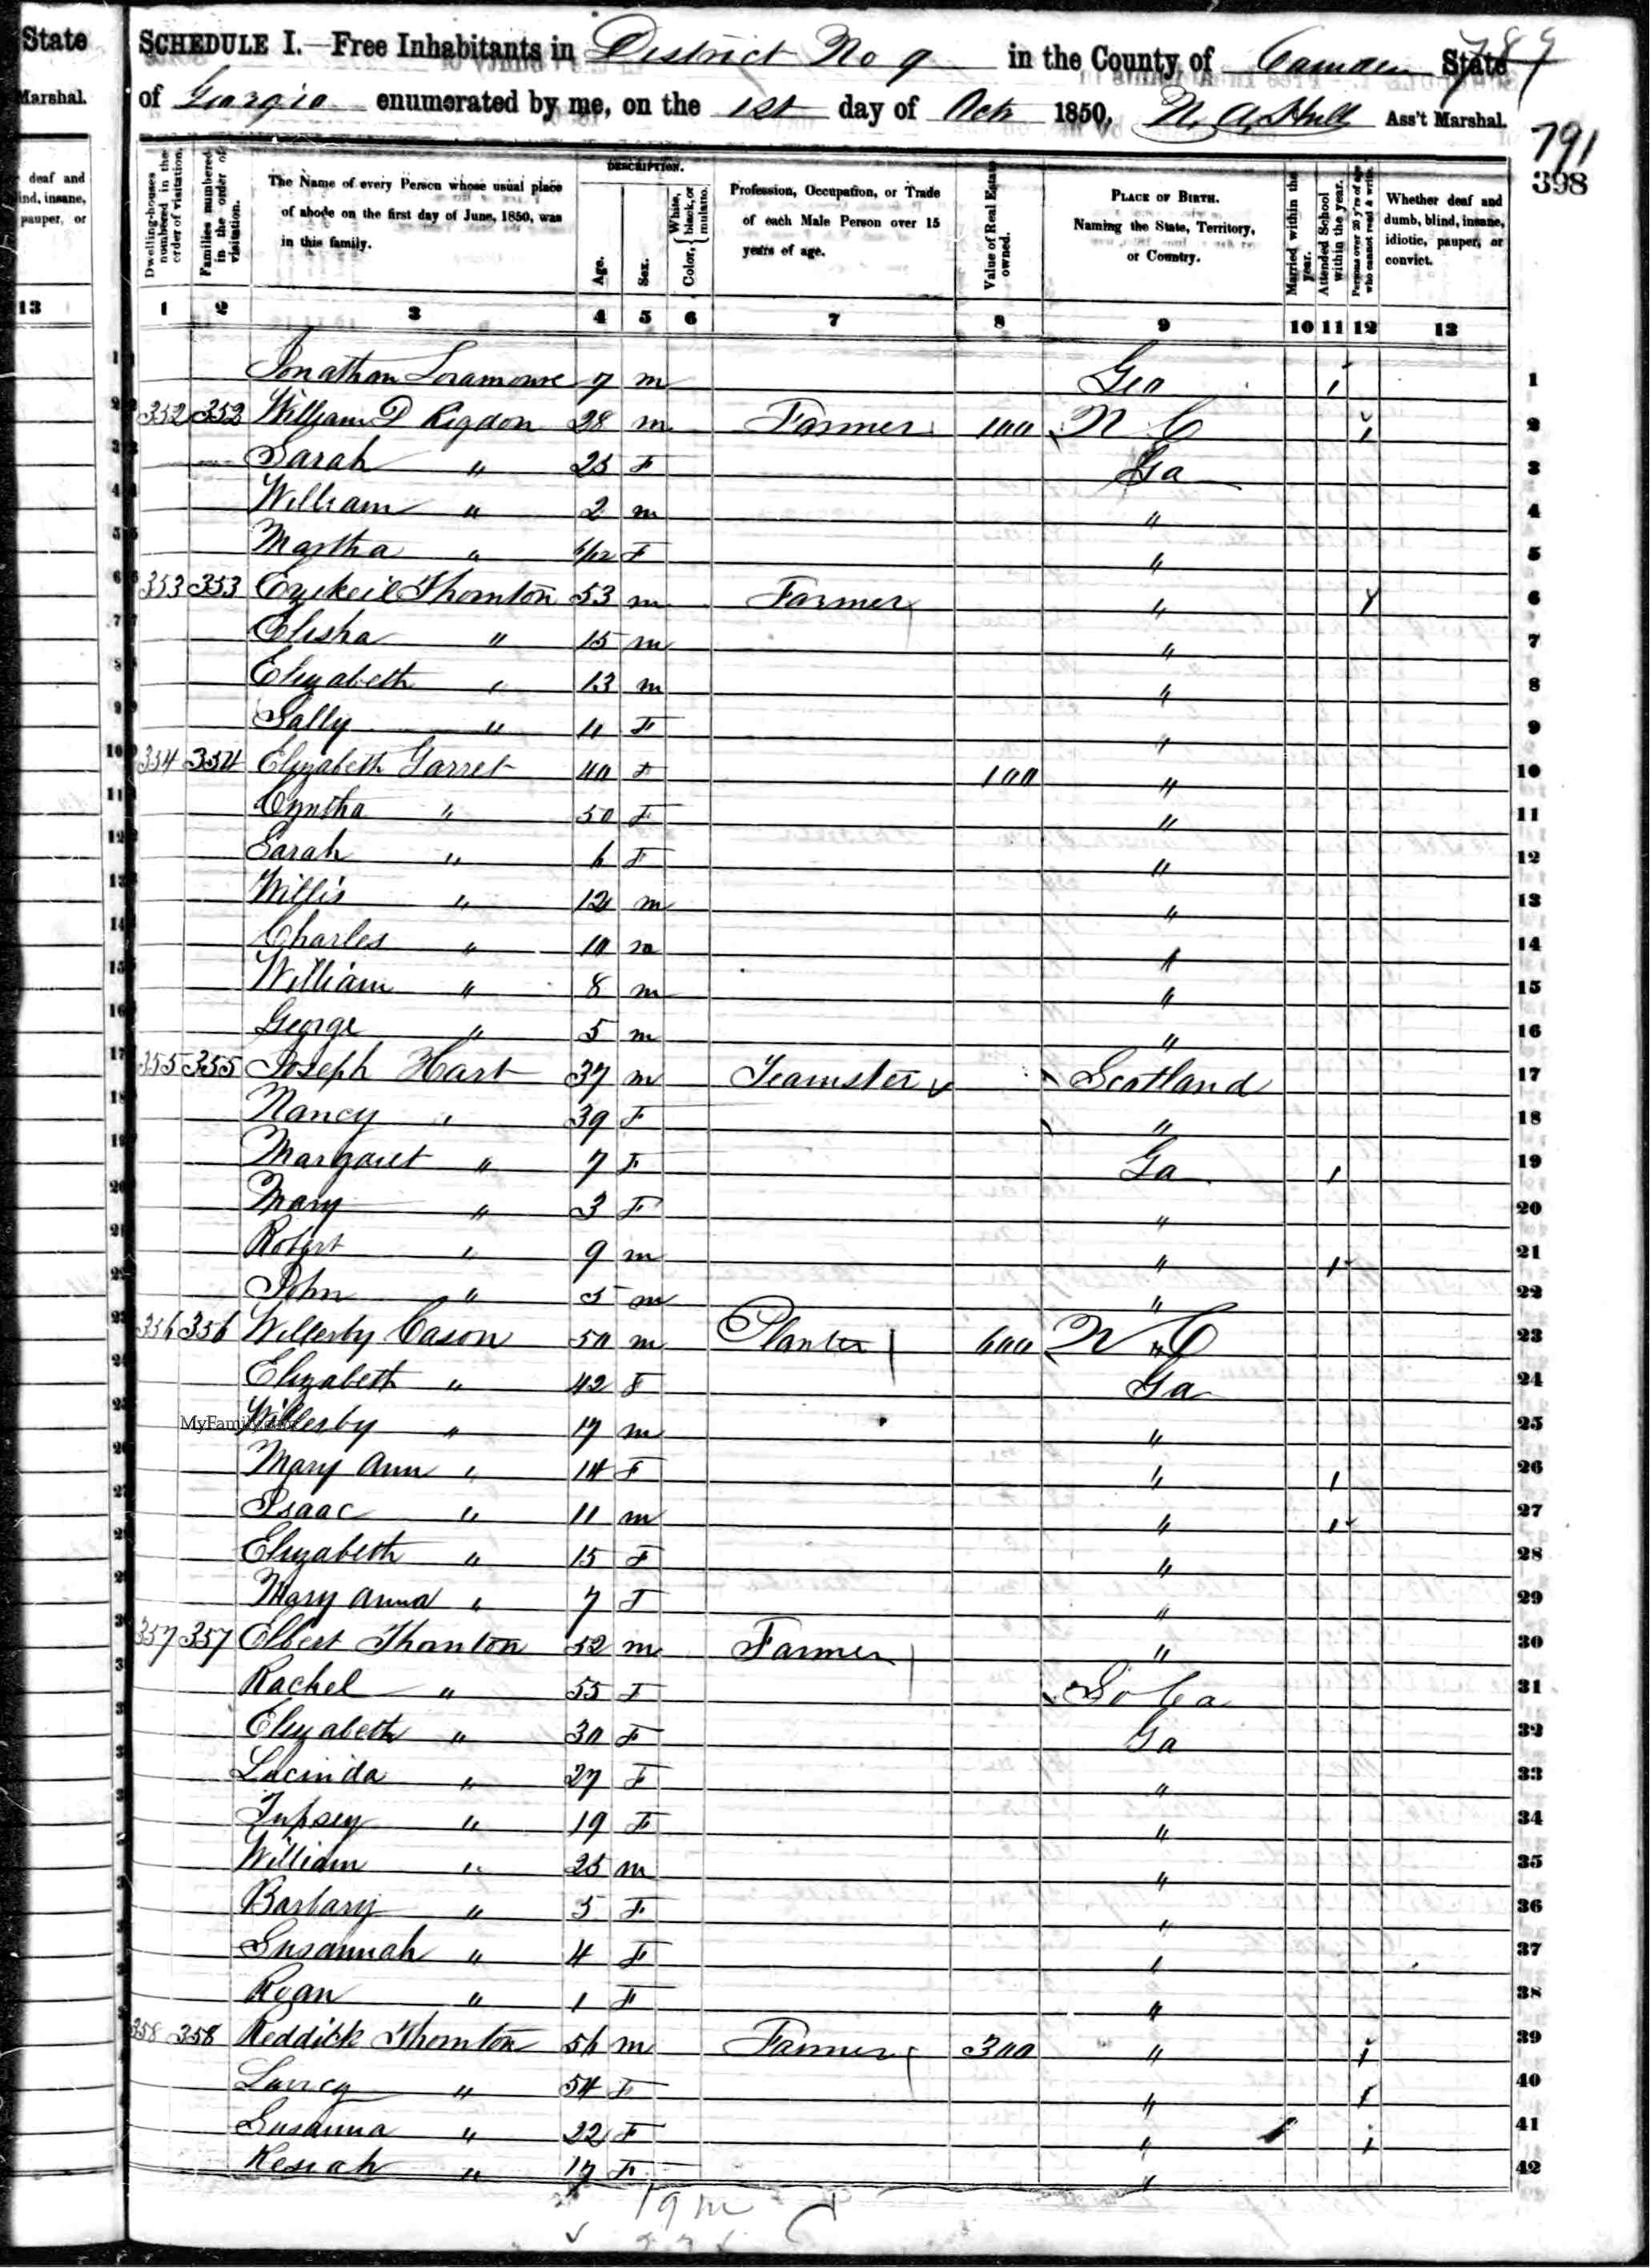 State
Marshal.
deaf and
ind, insane,
pauper, or
13
789
SCHEDULE I.—Free Inhabitants in District No 9 in the County of Camden State
of Georgia enumerated by me, on the 1st day of Oct 1850. N. A. Hull Ass't Marshal.
791
398
Dwelling-houses numbered in the order of visitation.
Families numbered in the order of visitation.
The Name of every Person whose usual place of abode on the first day of June, 1850, was in this family.
DESCRIPTION.
Age.
Sex.
Color, { White, black, or mulatto.
Profession, Occupation, or Trade of each Male Person over 15 years of age.
Value of Real Estate owned.
PLACE OF BIRTH. Naming the State, Territory, or Country.
Married within the year.
Attended School within the year.
Persons over 20 y'rs of age who cannot read & write.
Whether deaf and dumb, blind, insane, idiotic, pauper, or convict.
1 2 3 4 5 6 7 8 9 10 11 12 13
1 Jonathan 7 m Geo 1 1
2 352 352 William D Rigdon 28 m Farmer 100 N C 1 2
3 Sarah " 25 F Ga 3
4 William " 2 m " 4
5 Martha " /12 F " 5
6 353 353 Ezekeil Thornton 53 m Farmer " 6
7 Elisha " 15 m " 7
8 Elizabeth " 13 m " 8
9 Sally " 11 F " 9
10 354 354 Elizabeth Garret 40 F 100 " 10
11 Cyntha " 50 F " 11
12 Sarah " 6 F " 12
13 Willis " 12 m " 13
14 Charles " 10 m " 14
15 William " 8 m " 15
16 George " 5 m " 16
17 355 355 Joseph Hart 37 m Teamster Scotland 17
18 Nancy " 39 F " 18
19 Margaret " 7 F Ga 1 19
20 Mary " 3 F " 20
21 Robert " 9 m " 1 21
22 John " 5 m " 22
23 356 356 Willerby Cason 50 m Planter 600 N C 23
24 Elizabeth " 42 F Ga 24
25 Willerby " 17 m " 25
MyFamily.com
26 Mary Ann " 14 F " 1 26
27 Isaac " 11 m " 1 27
28 Elizabeth " 15 F " 28
29 Mary Anna " 7 F " 29
30 357 357 Elbert Thornton 52 m Farmer " 30
31 Rachel " 55 F So Ca 31
32 Elizabeth " 30 F Ga 32
33 Lucinda " 27 F " 33
34 " 19 F " 34
35 William " 25 m " 35
36 Barbary " 5 F " 36
37 Susannah " 4 F " 37
38 " 1 F " 38
39 358 358 Reddick Thornton 56 m Farmer 300 " 1 39
40 " 54 F " 1 40
41 Susanna " 22 F " 1 41
42 Kesiah " 17 F " 42
19 m